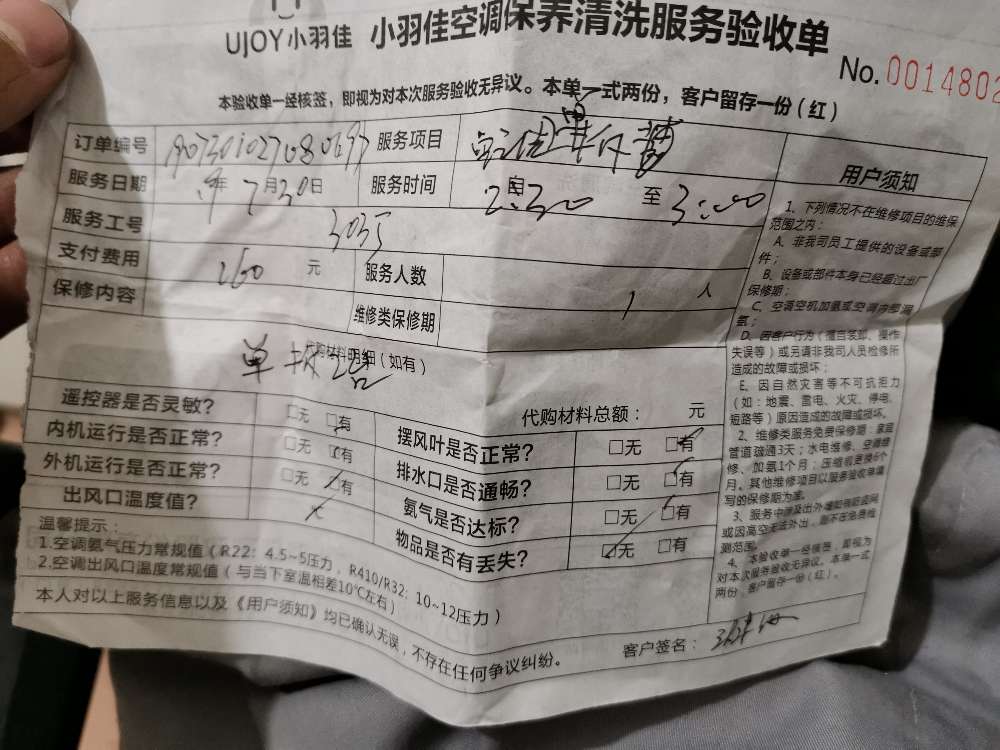 UJOY小羽佳 小羽佳空调保养清洗服务验收单
No.0014802
本验收单一经核签，即视为对本次服务验收无异议。本单一式两份，客户留存一份（红）
订单编号 服务项目
服务日期 年 7月30日 服务时间 自2:30 至 3:00
服务工号
支付费用 260 元 服务人数 1 人
保修内容 维修类保修期
代购材料明细（如有）
单
代购材料总额： 元
遥控器是否灵敏？ □无 □有 摆风叶是否正常？ □无 □有
内机运行是否正常？ □无 □有 排水口是否通畅？ □无 □有
外机运行是否正常？ □无 □有 氨气是否达标？ □无 □有
出风口温度值？ 物品是否有丢失？ □无 □有
温馨提示：
1.空调氨气压力常规值（R22：4.5~5压力，R410/R32：10~12压力）
2.空调出风口温度常规值（与当下室温相差10℃左右）
本人对以上服务信息以及《用户须知》均已确认无误，不存在任何争议纠纷。
客户签名：
用户须知
1、下列情况不在维修项目的维保
范围之内：
A、非我司员工提供的设备或部
件；
B、设备或部件本身已经超过出厂
保修期；
C、空调空机加氨或空调内部漏
氨；
D、因客户行为（擅自装卸、操作
失误等）或另请非我司人员检修所
造成的故障或损坏；
E、因自然灾害等不可抗拒力
（如：地震、雷电、火灾、停电、
短路等）原因造成的故障或损坏。
2、维修类服务免费保修期：家庭
管道疏通3天；水电维修、空调维
修、加氨1个月；压缩机更换6个
月。其他维修项目以服务验收单填
写的保修期为准。
测范围。
4、本验收单一经核签，即视为
对本次服务验收无异议。本单一式
两份，客户留存一份（红）。